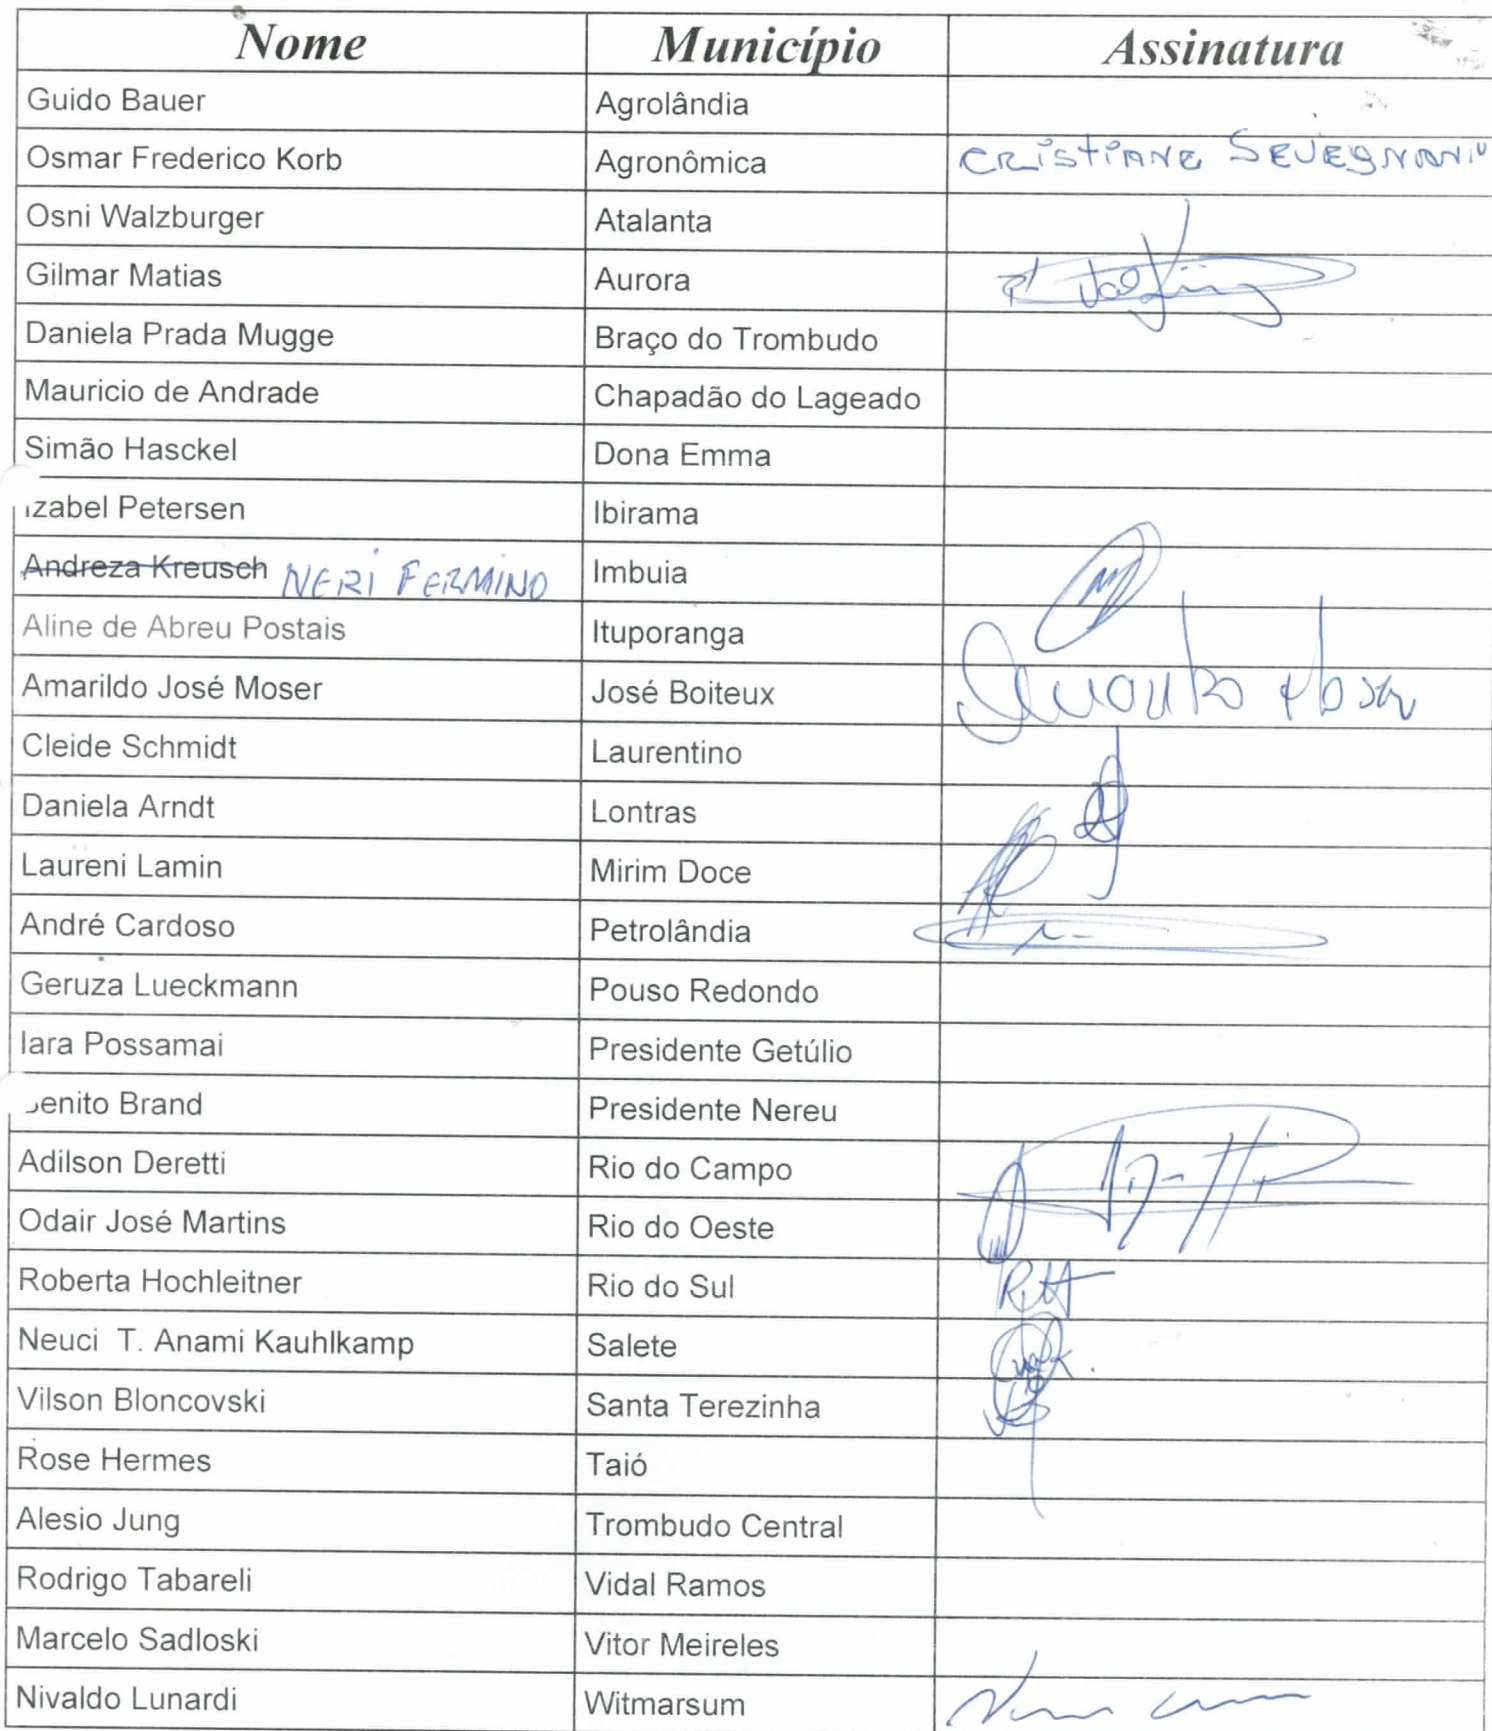 Nome Município Assinatura
Guido Bauer Agrolândia
Osmar Frederico Korb Agronômica CRISTIANE SEVEGNANI
Osni Walzburger Atalanta
Gilmar Matias Aurora
Daniela Prada Mugge Braço do Trombudo
Mauricio de Andrade Chapadão do Lageado
Simão Hasckel Dona Emma
Izabel Petersen Ibirama
Andreza Kreusch NERI FERMINO Imbuia
Aline de Abreu Postais Ituporanga
Amarildo José Moser José Boiteux
Cleide Schmidt Laurentino
Daniela Arndt Lontras
Laureni Lamin Mirim Doce
André Cardoso Petrolândia
Geruza Lueckmann Pouso Redondo
Iara Possamai Presidente Getúlio
enito Brand Presidente Nereu
Adilson Deretti Rio do Campo
Odair José Martins Rio do Oeste
Roberta Hochleitner Rio do Sul
Neuci T. Anami Kauhlkamp Salete
Vilson Bloncovski Santa Terezinha
Rose Hermes Taió
Alesio Jung Trombudo Central
Rodrigo Tabareli Vidal Ramos
Marcelo Sadloski Vitor Meireles
Nivaldo Lunardi Witmarsum